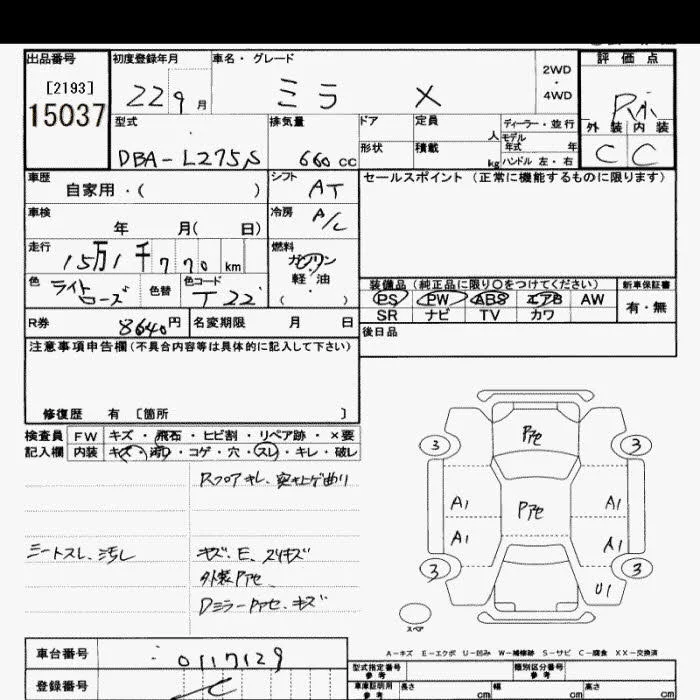 出品番号 初度登録年月 車名・グレード 評価点
[2193] 22 9月 ミラ X 2WD・4WD
15037 外装 内装
型式 排気量 ドア 定員 人 ディーラー・並行
DBA-L275S 660cc 形状 積載 kg モデル年式 年
ハンドル 左・右
C C
車歴 自家用・( ) シフト AT セールスポイント(正常に機能するものに限ります)
車検 年 月( 日) 冷房 A/C
走行 15万1千770km 燃料 ガソリン・軽油
( )
色 ライトローズ 色替 色コード T22
装備品(純正品に限り○をつけてください) 新車保証書
PS PW ABS エアB AW 有・無
SR ナビ TV カワ
R券 8640円 名変期限 月 日 後日品
注意事項申告欄(不具合内容等は具体的に記入して下さい)
修復歴 有 [箇所 ]
検査員 FW キズ・飛石・ヒビ割・リペア跡・×要
記入欄 内装 キズ・汚れ・コゲ・穴・スレ・キレ・破レ
Rフロアキレ、突上ゲ曲り
シートスレ、汚レ キズ、E、スリキズ
外装Pアセ
DミラーPアセ、キズ
Pアセ
3 3
Pアセ
A1 A1
A1 A1
3 3
U1
スペア
A-キズ E-エクボ U-凹み W-補修跡 S-サビ C-腐食 XX-交換済
車台番号 0117129
登録番号
型式指定番号 参考 類別区分番号 参考
車庫証明用 参考 長さ cm 幅 cm 高さ cm